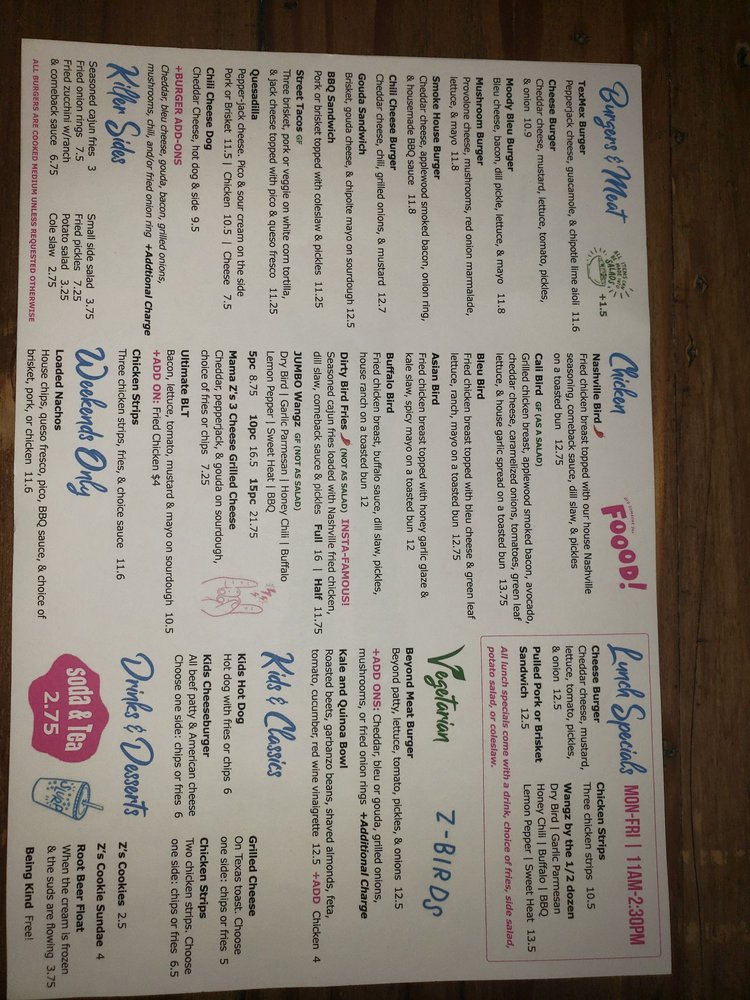 FOOOD!
Burgers & Meat
ITEMS CAN BE MADE INTO SALADS! +1.5
TexMex Burger
Pepperjack cheese, guacamole, & chipotle lime aioli 11.6
Cheese Burger
Cheddar cheese, mustard, lettuce, tomato, pickles,
& onion 10.9
Moody Bleu Burger
Bleu cheese, bacon, dill pickle, lettuce, & mayo 11.8
Mushroom Burger
Provolone cheese, mushrooms, red onion marmalade,
lettuce, & mayo 11.8
Smoke House Burger
Cheddar cheese, applewood smoked bacon, onion ring,
& housemade BBQ sauce 11.8
Chili Cheese Burger
Cheddar cheese, chili, grilled onions, & mustard 12.7
Gouda Sandwich
Brisket, gouda cheese, & chipolte mayo on sourdough 12.5
BBQ Sandwich
Pork or brisket topped with coleslaw & pickles 11.25
Street Tacos GF
Three brisket, pork or veggie on white corn tortilla,
& jack cheese topped with pico & queso fresco 11.25
Quesadilla
Pepper-jack cheese, Pico & sour cream on the side
Pork or Brisket 11.5 | Chicken 10.5 | Cheese 7.5
Chili Cheese Dog
Cheddar Cheese, hot dog & side 9.5
+BURGER ADD-ONS
Cheddar, bleu cheese, gouda, bacon, grilled onions,
mushrooms, chili, and/or fried onion ring +Addtional Charge
Killer Sides
Seasoned cajun fries 3
Fried onion rings 7.5
Fried zucchini w/ranch
& comeback sauce 6.75
Small side salad 3.75
Fried pickles 7.25
Potato salad 3.25
Cole slaw 2.75
ALL BURGERS ARE COOKED MEDIUM UNLESS REQUESTED OTHERWISE
Chicken
Nashville Bird
Fried chicken breast topped with our house Nashville
seasoning, comeback sauce, dill slaw, & pickles
on a toasted bun 12.75
Cali Bird GF (AS A SALAD)
Grilled chicken breast, applewood smoked bacon, avocado,
cheddar cheese, caramelized onions, tomatoes, green leaf
lettuce, & house garlic spread on a toasted bun 13.75
Bleu Bird
Fried chicken breast topped with bleu cheese & green leaf
lettuce, ranch, mayo on a toasted bun 12.75
Asian Bird
Fried chicken breast topped with honey garlic glaze &
kale slaw, spicy mayo on a toasted bun 12
Buffalo Bird
Fried chicken breast, buffalo sauce, dill slaw, pickles,
house ranch on a toasted bun 12
Dirty Bird Fries (NOT AS SALAD) INSTA-FAMOUS!
Seasoned cajun fries loaded with Nashville fried chicken,
dill slaw, comeback sauce & pickles Full 16 | Half 11.75
JUMBO Wangz GF (NOT AS SALAD)
Dry Bird | Garlic Parmesan | Honey Chili | Buffalo
Lemon Pepper | Sweet Heat | BBQ
5pc 8.75 10pc 16.5 15pc 21.75
Mama Z's 3 Cheese Grilled Cheese
Cheddar, pepperjack, & gouda on sourdough,
choice of fries or chips 7.25
Ultimate BLT
Bacon, lettuce, tomato, mustard & mayo on sourdough 10.5
+ADD ON: Fried Chicken $4
Chicken Strips
Three chicken strips, fries, & choice sauce 11.6
Weekends Only
Loaded Nachos
House chips, queso fresco, pico, BBQ sauce, & choice of
brisket, pork, or chicken 11.6
Lunch Specials MON-FRI | 11AM-2:30PM
Cheese Burger
Cheddar cheese, mustard,
lettuce, tomato, pickles,
& onion 12.5
Pulled Pork or Brisket
Sandwich 12.5
Chicken Strips
Three chicken strips 10.5
Wangz by the 1/2 dozen
Dry Bird | Garlic Parmesan
Honey Chili | Buffalo | BBQ
Lemon Pepper | Sweet Heat 13.5
All lunch specials come with a drink, choice of fries, side salad,
potato salad, or coleslaw.
Vegetarian
Z-BIRDS
Beyond Meat Burger
Beyond patty, lettuce, tomato, pickles, & onions 12.5
+ADD ONS: Cheddar, bleu or gouda, grilled onions,
mushrooms, or fried onion rings +Additional Charge
Kale and Quinoa Bowl
Roasted beets, garbanzo beans, shaved almonds, feta,
tomato, cucumber, red wine vinaigrette 12.5 +ADD Chicken 4
Kids & Classics
Kids Hot Dog
Hot dog with fries or chips 6
Kids Cheeseburger
All beef patty & American cheese
Choose one side: chips or fries 6
Grilled Cheese
On Texas toast. Choose
one side: chips or fries 5
Chicken Strips
Two chicken strips. Choose
one side: chips or fries 6.5
Drinks & Desserts
soda & Tea
2.75
Z's Cookies 2.5
Z's Cookie Sundae 4
Root Beer Float
When the cream is frozen
& the suds are flowing 3.75
Being Kind Free!